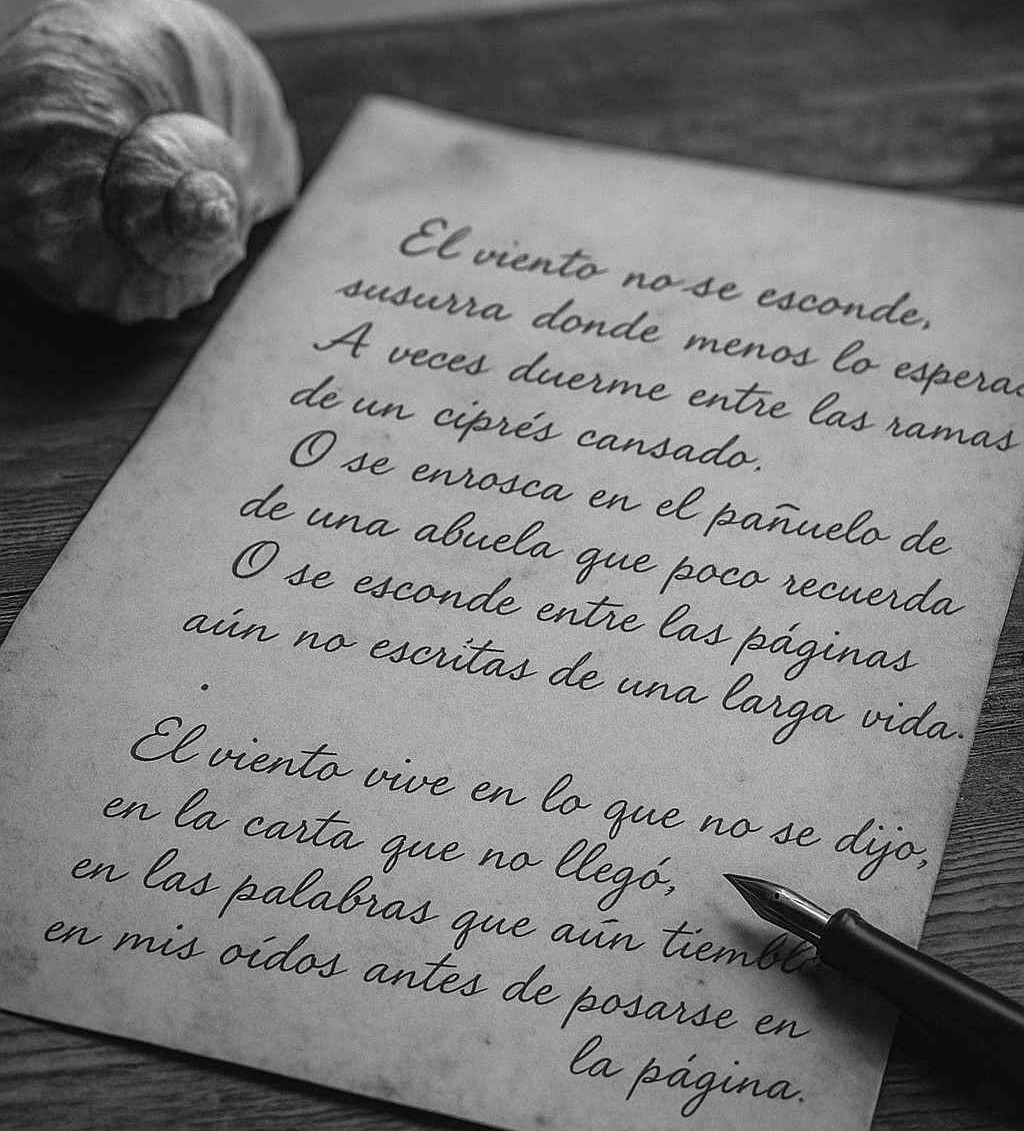 El viento no se esconde,
susurra donde menos lo esperas
A veces duerme entre las ramas
de un ciprés cansado.
O se enrosca en el pañuelo de
de una abuela que poco recuerda
O se esconde entre las páginas
aún no escritas de una larga vida.
El viento vive en lo que no se dijo,
en la carta que no llegó,
en las palabras que aún
en mis oídos antes de posarse en
la página.